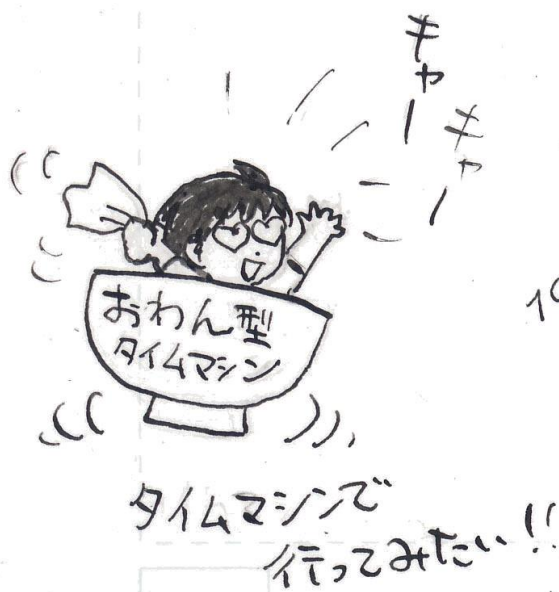 キャー
キャー
おわん型
タイムマシン
タイムマシンで
行ってみたい!!